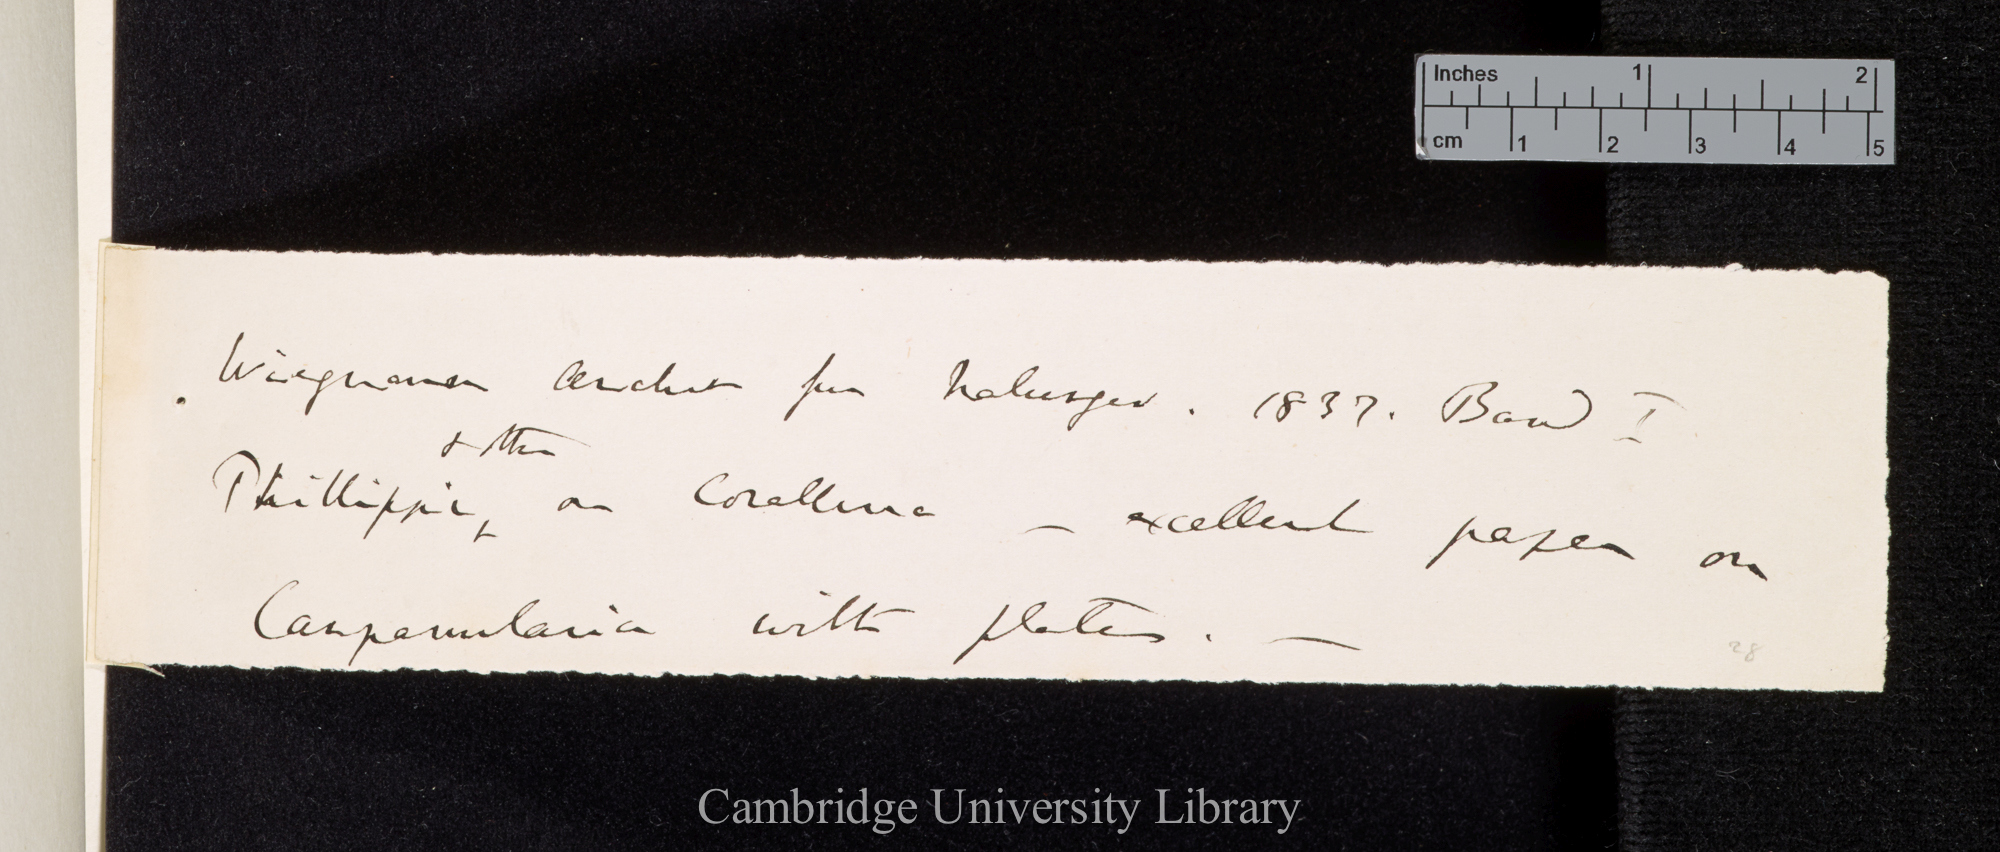 Inches 1 2
cm 1 2 3 4 5
Wiegmann Archiv fur Naturges. 1837. Band I
& others
Phillippi, on Corallina — excellent paper on
Campanularia with plates. —
28
Cambridge University Library